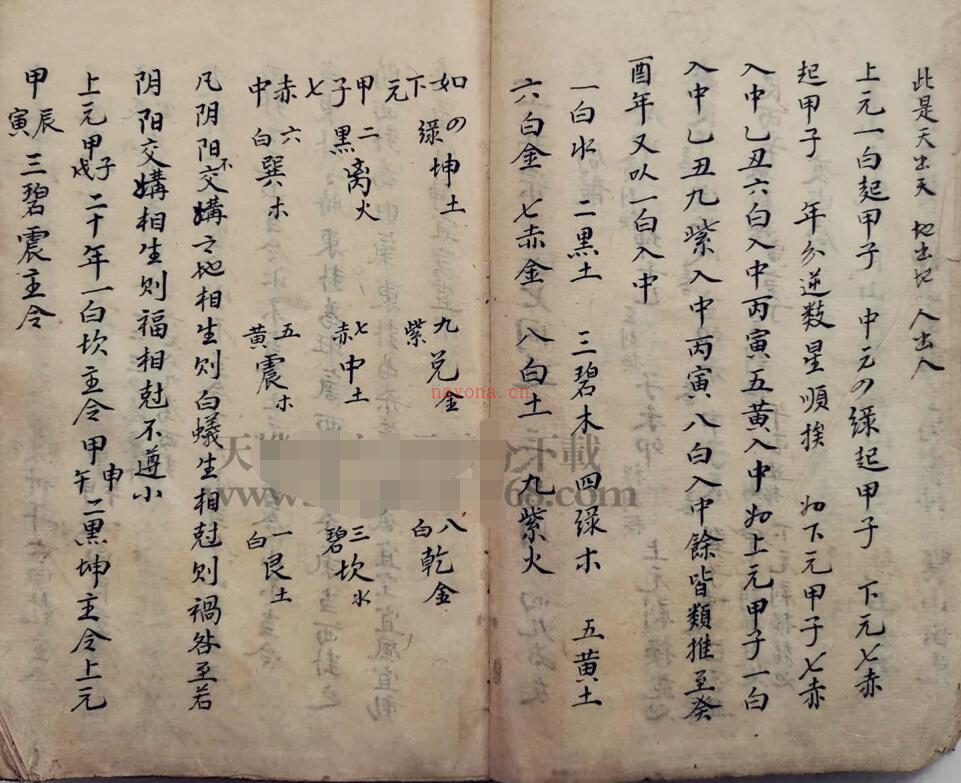 此是天出天 地出地 人出人
上元一白起甲子 中元四绿起甲子 下元七赤
起甲子 年分逆数星順挨 如下元甲子七赤
入中乙丑六白入中丙寅五黄入中如上元甲子一白
入中乙丑九紫入中丙寅八白入中餘皆類推至癸
酉年又以一白入中
一白水 二黒土 三碧木 四绿木 五黄土
六白金 七赤金 八白土 九紫火
如四绿坤土 九紫兑金 八白乾金
下元甲子七 二黒离火 七赤中土 三碧坎水
赤中 六白巽木 五黄震木 一白艮土
凡阴阳不交媾之地相生则白蟻生相尅则禍咎至若
阴阳交媾相生则福相尅不遵小
上元甲子戌二十年一白坎主令甲申午二黒坤主令上元
甲辰寅三碧震主令
nayona.cn
天 下載
www. 68.com